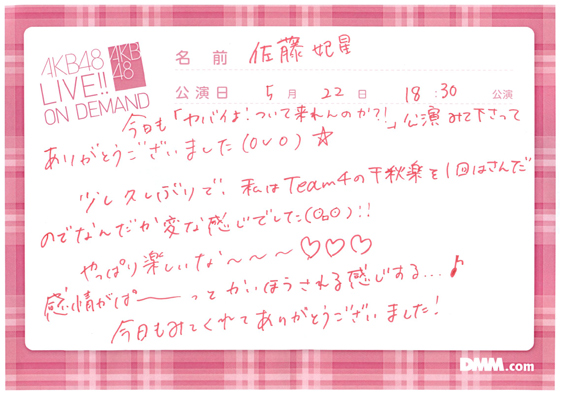 AKB48
LIVE!!
ON DEMAND
AKB
48
名 前 佐藤 妃星
公演日 5月 22日 18:30 公演
今日も「ヤバイよ!ついて来れんのか?!」公演みて下さって
ありがとうございました(OvO)☆
少し久しぶりで、私はTeam4の千秋楽を1回はさんだ
のでなんだか変な感じでした(OoO)!!
やっぱり楽しいな〜〜〜♡♡♡
感情がぱーーっとかいほうされる感じする...♪
今日もみてくれてありがとうございました!
DMM.com